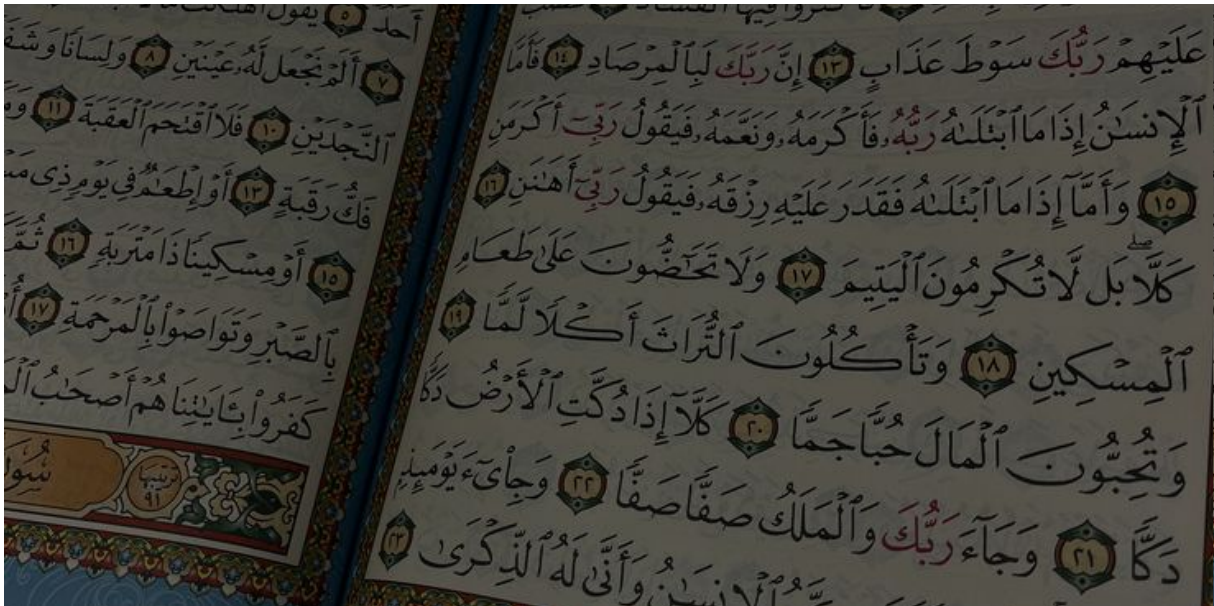 عَلَيْهِمْ رَبُّكَ سَوْطَ عَذَابٍ ١٣ إِنَّ رَبَّكَ لَبِٱلْمِرْصَادِ ١٤ فَأَمَّا
ٱلْإِنسَٰنُ إِذَا مَا ٱبْتَلَىٰهُ رَبُّهُۥ فَأَكْرَمَهُۥ وَنَعَّمَهُۥ فَيَقُولُ رَبِّىٓ أَكْرَمَنِ
١٥ وَأَمَّآ إِذَا مَا ٱبْتَلَىٰهُ فَقَدَرَ عَلَيْهِ رِزْقَهُۥ فَيَقُولُ رَبِّىٓ أَهَٰنَنِ ١٦
كَلَّا ۖ بَل لَّا تُكْرِمُونَ ٱلْيَتِيمَ ١٧ وَلَا تَحَٰٓضُّونَ عَلَىٰ طَعَامِ
ٱلْمِسْكِينِ ١٨ وَتَأْكُلُونَ ٱلتُّرَاثَ أَكْلًا لَّمًّا ١٩
وَتُحِبُّونَ ٱلْمَالَ حُبًّا جَمًّا ٢٠ كَلَّآ إِذَا دُكَّتِ ٱلْأَرْضُ دَكًّا
دَكًّا ٢١ وَجَآءَ رَبُّكَ وَٱلْمَلَكُ صَفًّا صَفًّا ٢٢ وَجِا۟ىٓءَ يَوْمَئِذٍۭ
ٱلْإِنسَٰنُ وَأَنَّىٰ لَهُ ٱلذِّكْرَىٰ ٢٣
أَحَدٌ ٥ يَقُولُ أَهْلَكْتُ
٧ أَلَمْ نَجْعَل لَّهُۥ عَيْنَيْنِ ٨ وَلِسَانًا
ٱلنَّجْدَيْنِ ١٠ فَلَا ٱقْتَحَمَ ٱلْعَقَبَةَ ١١
فَكُّ رَقَبَةٍ ١٣ أَوْ إِطْعَٰمٌ فِى يَوْمٍ ذِى
١٥ أَوْ مِسْكِينًا ذَا مَتْرَبَةٍ ١٦ ثُمَّ
بِٱلصَّبْرِ وَتَوَاصَوْا۟ بِٱلْمَرْحَمَةِ ١٧
كَفَرُوا۟ بِـَٔايَٰتِنَا هُمْ أَصْحَٰبُ
ترتيبها ٩١